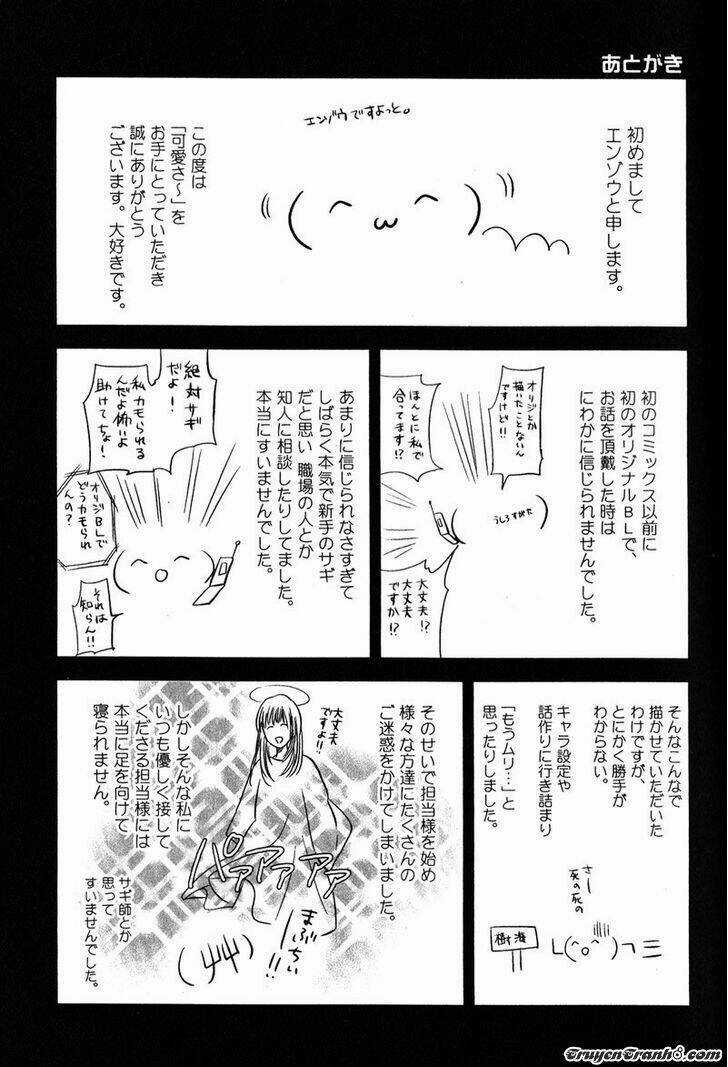 あとがき
初めまして
エンゾウと申します。
エンゾウですよっと。
(＾ω＾)
この度は
「可愛さ～」を
お手にとっていただき
誠にありがとう
ございます。大好きです。
初のコミックス以前に
初のオリジナルBLで、
お話を頂戴した時は
にわかに信じられませんでした。
オリジとか
描いたことないん
ですけど!!
ほんとに私で
合ってます!?
うしろすがた
大丈夫!?
大丈夫
ですか!?
あまりに信じられなさすぎて
しばらく本気で新手のサギ
だと思い 職場の人とか
知人に相談したりしてました。
本当にすいませんでした。
絶対サギ
だよ!
私カモられる
んだよ怖いよ
助けてちょ!
オリジBLで
どうカモられ
んの?
それは
知らん!!
そんなこんなで
描かせていただいた
わけですが、
とにかく勝手が
わからない。
キャラ設定や
話作りに行き詰まり
「もうムリ…」と
思ったりしました。
さー
死の死の
樹海
そのせいで担当様を始め
様々な方達にたくさんの
ご迷惑をかけてしまいました。
大丈夫
ですよ!!
パァァァァァ
まぶちぃ!!
しかしそんな私に
いつも優しく接して
くださる担当様には
本当に足を向けて
寝られません。
サギ師とか
思って
すいませんでした。
TruyenTranh8.com